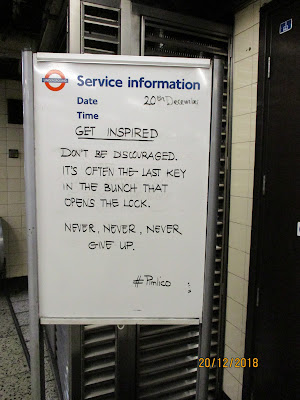 Service information
Date 20th December
Time
GET INSPIRED
DON'T BE DISCOURAGED.
IT'S OFTEN THE LAST KEY
IN THE BUNCH THAT
OPENS THE LOCK.
NEVER, NEVER, NEVER
GIVE UP.
#Pimlico
20/12/2018